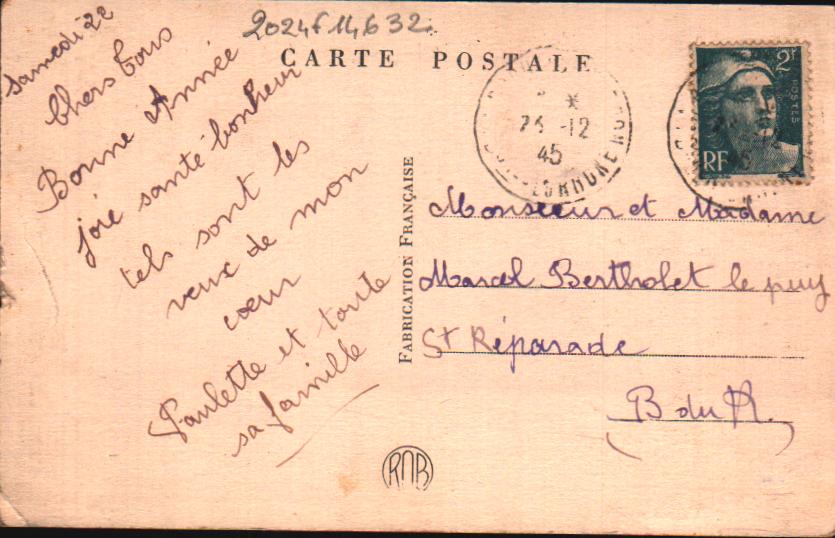 2024f14632.
CARTE POSTALE
Samedi 22
Chers tous
Bonne Année
joie santé bonheur
tels sont les
veux de mon
cœur
Paulette et toute
sa famille
FABRICATION FRANÇAISE
*
23 -12
45
2f
POSTES
RF
Monsieur et Madame
Marcel Bertholet le puy
St Réparade
B du R.
RNB